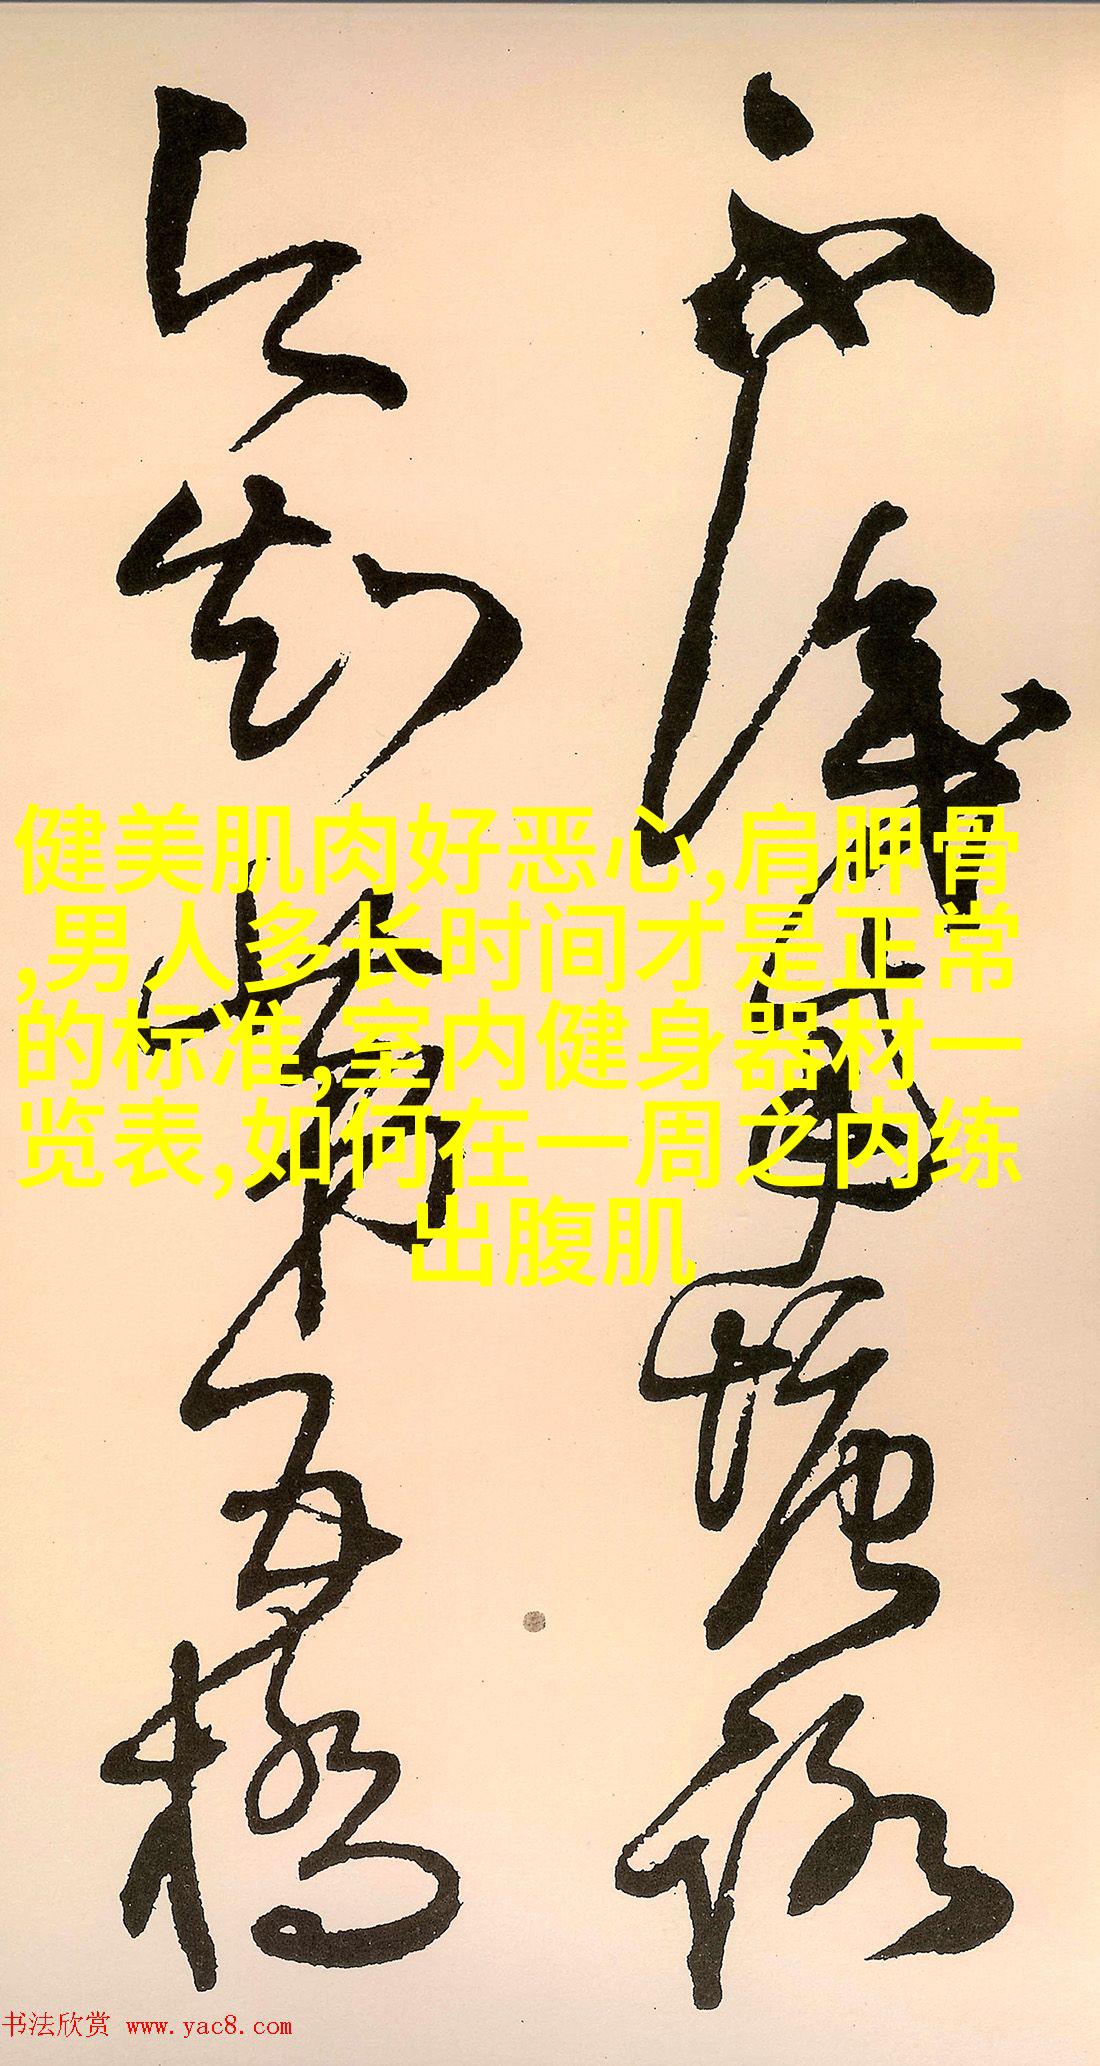 不識南塘路
今知第五橋
健美肌肉好恶心,肩胛骨
,男人多长时间才是正常
的标准,室内健身器材一
览表,如何在一周之内练
出腹肌
书法欣赏 www.yac8.com